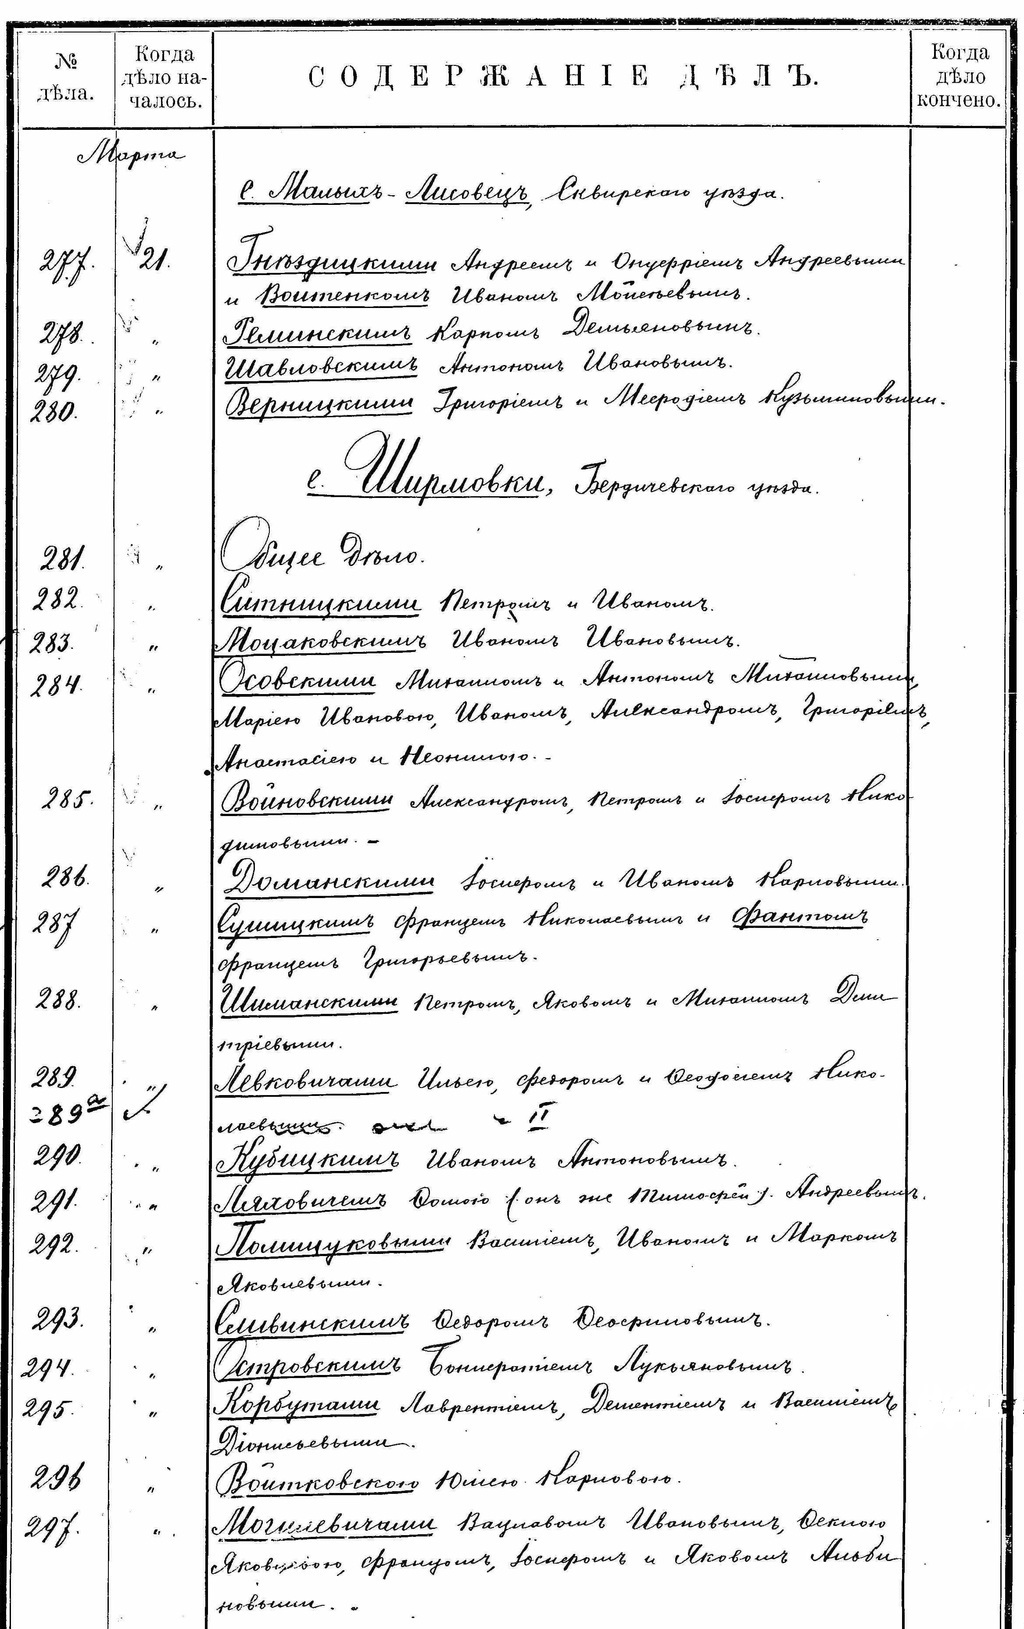 № дѣла.
Когда дѣло на-чалось.
СОДЕРЖАНІЕ ДѢЛЪ.
Когда дѣло кончено.
Марта
с. Малыхъ-Лисовецъ, Сквирскаго уѣзда.
277. 21. Гнѣздицкими Андреемъ и Онуфріемъ Андреевыми
и Войтенкомъ Иваномъ Моисеевымъ.
278. „ Реминскимъ Карпомъ Демьяновымъ.
279. „ Шавловскимъ Антономъ Ивановымъ.
280. „ Верницкими Григоріемъ и Меѳодіемъ Кузьминовыми.
с. Ширмовки, Бердичевскаго уѣзда.
281. „ Общее дѣло.
282. „ Ситницкими Петромъ и Иваномъ.
283. „ Моцаковскимъ Иваномъ Ивановымъ.
284. „ Осовскими Михаиломъ и Антономъ Михайловыми,
Маріею Ивановою, Иваномъ, Александромъ, Григоріемъ,
Анастасіею и Неонилою. -
285. „ Войновскими Александромъ, Петромъ и Іосифомъ Нико-
димовыми. -
286. „ Доманскими Іосифомъ и Иваномъ Карповыми.
287 „ Сушицкимъ Францемъ Николаевымъ и Фантомъ
Францемъ Григорьевымъ.
288. „ Шиманскими Петромъ, Яковомъ и Михаиломъ Дми
тріевыми.
289. „ Левковичами Ильею, Федоромъ и Ѳеодосіемъ Нико-
289а лаевыми. II
290. „ Кубицкимъ Иваномъ Антоновымъ.
291. „ Ляховичемъ Ѳомою (онъ же Тимофей). Андреевымъ.
292. „ Полищуковыми Василіемъ, Иваномъ и Маркомъ
Яковлевыми.
293. „ Сливинскимъ Ѳедоромъ Ѳеофиловымъ.
294. „ Островскимъ Бонифатіемъ Лукьяновымъ.
295. „ Корбутами Лаврентіемъ, Дементіемъ и Василіемъ
Діонисьевыми.
296 „ Войтковскою Юліею Карповою.
297. „ Могилевичами Вацлавомъ Ивановымъ, Ѳеклою
Яковлевою, Францомъ, Іосифомъ и Яковомъ Альби
новыми.